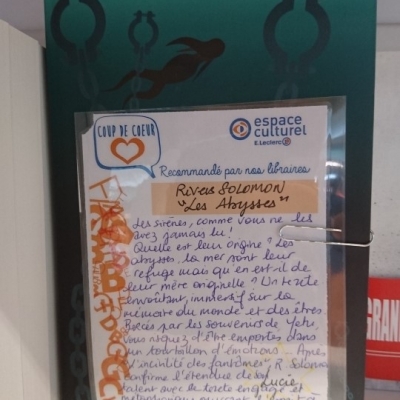 COUP DE COEUR
espace
culturel
E.Leclerc
Recommandé par nos libraires
RIVERS SOLOMON
"Les Abysses"
Les sirènes, comme vous ne les
avez jamais lu!
Quelle est leur origine? Les
abysses, la mer sont leur
refuge mais qu'en est-il de
leur mère originelle? Un texte
envoûtant, immersif sur la
mémoire du monde et des êtres
Bercés par les souvenirs de Yetu,
vous risquez d'être emportés dans
un tourbillon d'émotions. Après
"L'incivilité des fantômes", R. Solomon
confirme l'étendue de son
talent avec ce texte engagé et
Lucie
GRAN